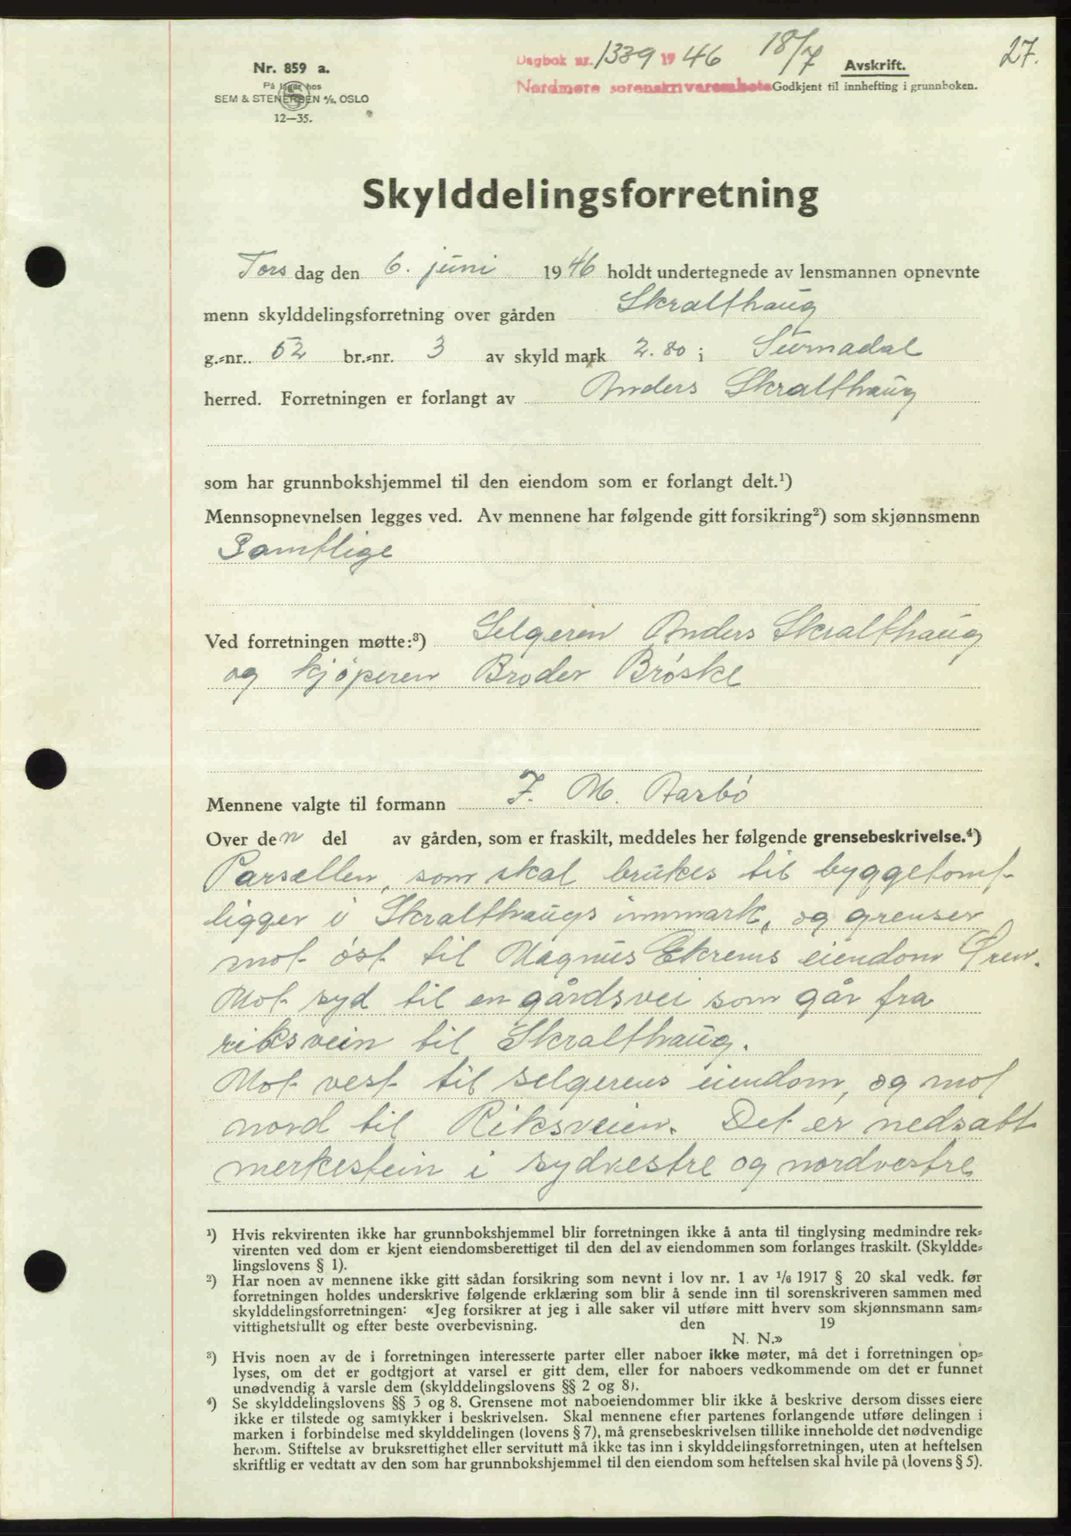 27.
Dagbok nr. 1339 1946 18/7
Nordmøre sorenskriverembete
Avskrift.
Godkjent til innhefting i grunnboken.
Nr. 859 a.
På lager hos
SEM & STENERSEN A/S, OSLO
12—35.
Skylddelingsforretning
Torsdag den 6. juni 1946 holdt undertegnede av lensmannen opnevnte
menn skylddelingsforretning over gården Skralthaug
g.-nr.. 52 br.-nr. 3 av skyld mark 2.80 i Surnadal
herred. Forretningen er forlangt av Anders Skralthaug
som har grunnbokshjemmel til den eiendom som er forlangt delt.¹)
Mennsopnevnelsen legges ved. Av mennene har følgende gitt forsikring²) som skjønnsmenn
Samtlige
Ved forretningen møtte:³) Selgeren Anders Skralthaug
og kjøperen Broder Brøske
Mennene valgte til formann J. M. Aarbø
Over den del av gården, som er fraskilt, meddeles her følgende grensebeskrivelse.⁴)
Parsellen, som skal brukes til byggetomt
ligger i Skralthaugs innmark, og grenser
mot øst til Magnus Ekrems eiendom Øren.
Mot syd til en gårdsvei som går fra
riksvein til Skralthaug.
Mot vest til selgerens eiendom, og mot
nord til Riksveien. Det er nedsatt
merkestein i sydvestre og nordvestre
¹) Hvis rekvirenten ikke har grunnbokshjemmel blir forretningen ikke å anta til tinglysing medmindre rek-
virenten ved dom er kjent eiendomsberettiget til den del av eiendommen som forlanges fraskilt. (Skyldde-
lingslovens § 1).
²) Har noen av mennene ikke gitt sådan forsikring som nevnt i lov nr. 1 av 1/6 1917 § 20 skal vedk. før
forretningen holdes underskrive følgende erklæring som blir å sende inn til sorenskriveren sammen med
skylddelingsforretningen: «Jeg forsikrer at jeg i alle saker vil utføre mitt hverv som skjønnsmann sam-
vittighetsfullt og efter beste overbevisning. den 19
N. N.»
³) Hvis noen av de i forretningen interesserte parter eller naboer ikke møter, må det i forretningen op-
lyses, om det er godtgjort at varsel er gitt dem, eller for naboers vedkommende om det er funnet
unødvendig å varsle dem (skylddelingslovens §§ 2 og 8).
⁴) Se skylddelingslovens §§ 3 og 8. Grensene mot naboeiendommer blir ikke å beskrive dersom disses eiere
ikke er tilstede og samtykker i beskrivelsen. Skal mennene efter partenes forlangende utføre delingen i
marken i forbindelse med skylddelingen (lovens § 7), må grensebeskrivelsen tillike inneholde det nødvendige
herom. Stiftelse av bruksrettighet eller servitutt må ikke tas inn i skylddelingsforretningen, uten at heftelsen
skriftlig er vedtatt av den som har grunnbokshjemmel til den eiendom som heftelsen skal hvile på (lovens § 5).